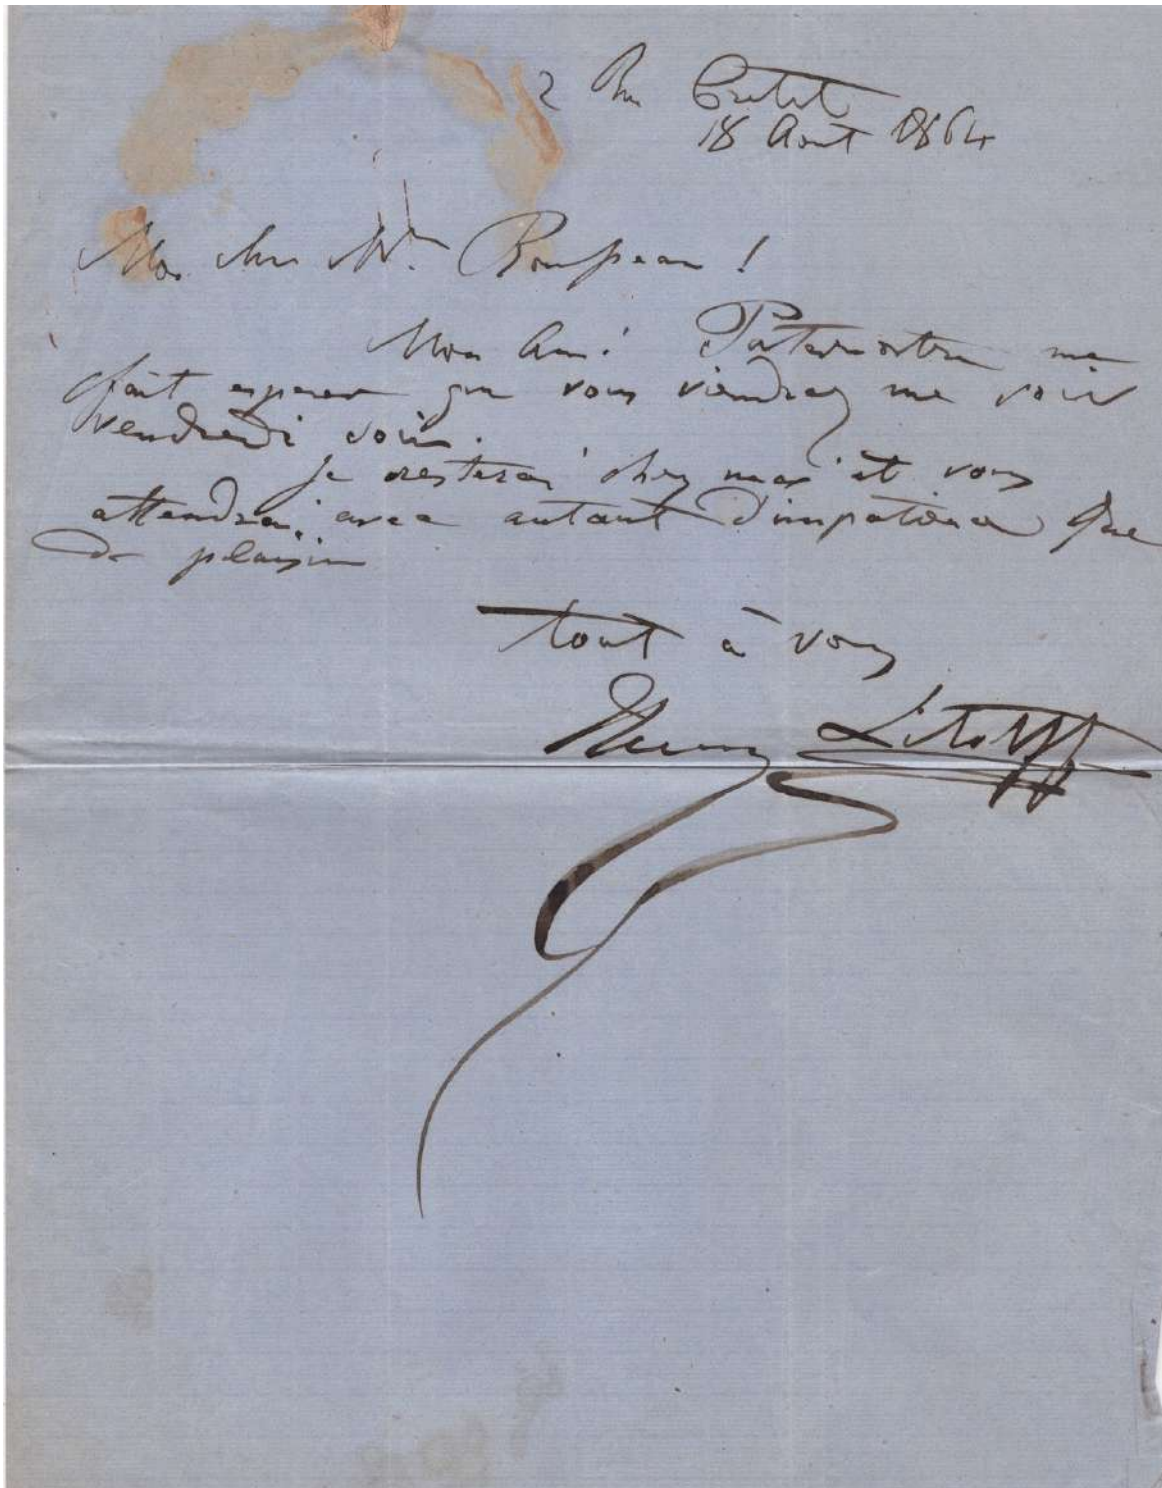 2 Rue Cretet
18 Aout 1864
Mon cher Mr.
Mon Ami! Paternostre me
fait esperer que vous viendrez me voir
vendredi soir.
je resterai chez moi et vous
attendrai avec autant d'impatience que
de plaisir
tout à vous
Henry Litolff